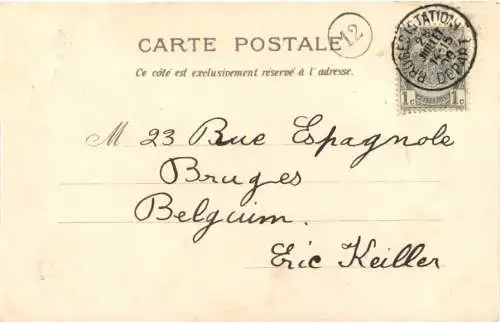 12
CARTE POSTALE
Ce côté est exclusivement réservé à l'adresse.
BRUGES (STATION)
DÉPART
1c 1c
M 23 Rue Espagnole
Bruges
Belguim.
Eric Keiller